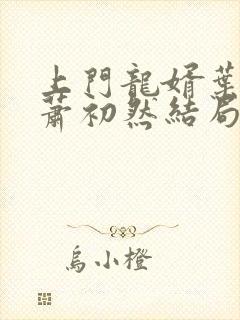 上門龍婿葉
蕭初然結局
烏小橙